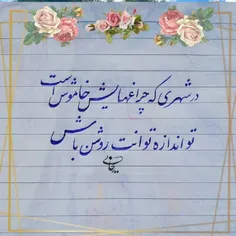 در شهری که چراغهایش خاموش است
تو اندازه توانت روشن باش